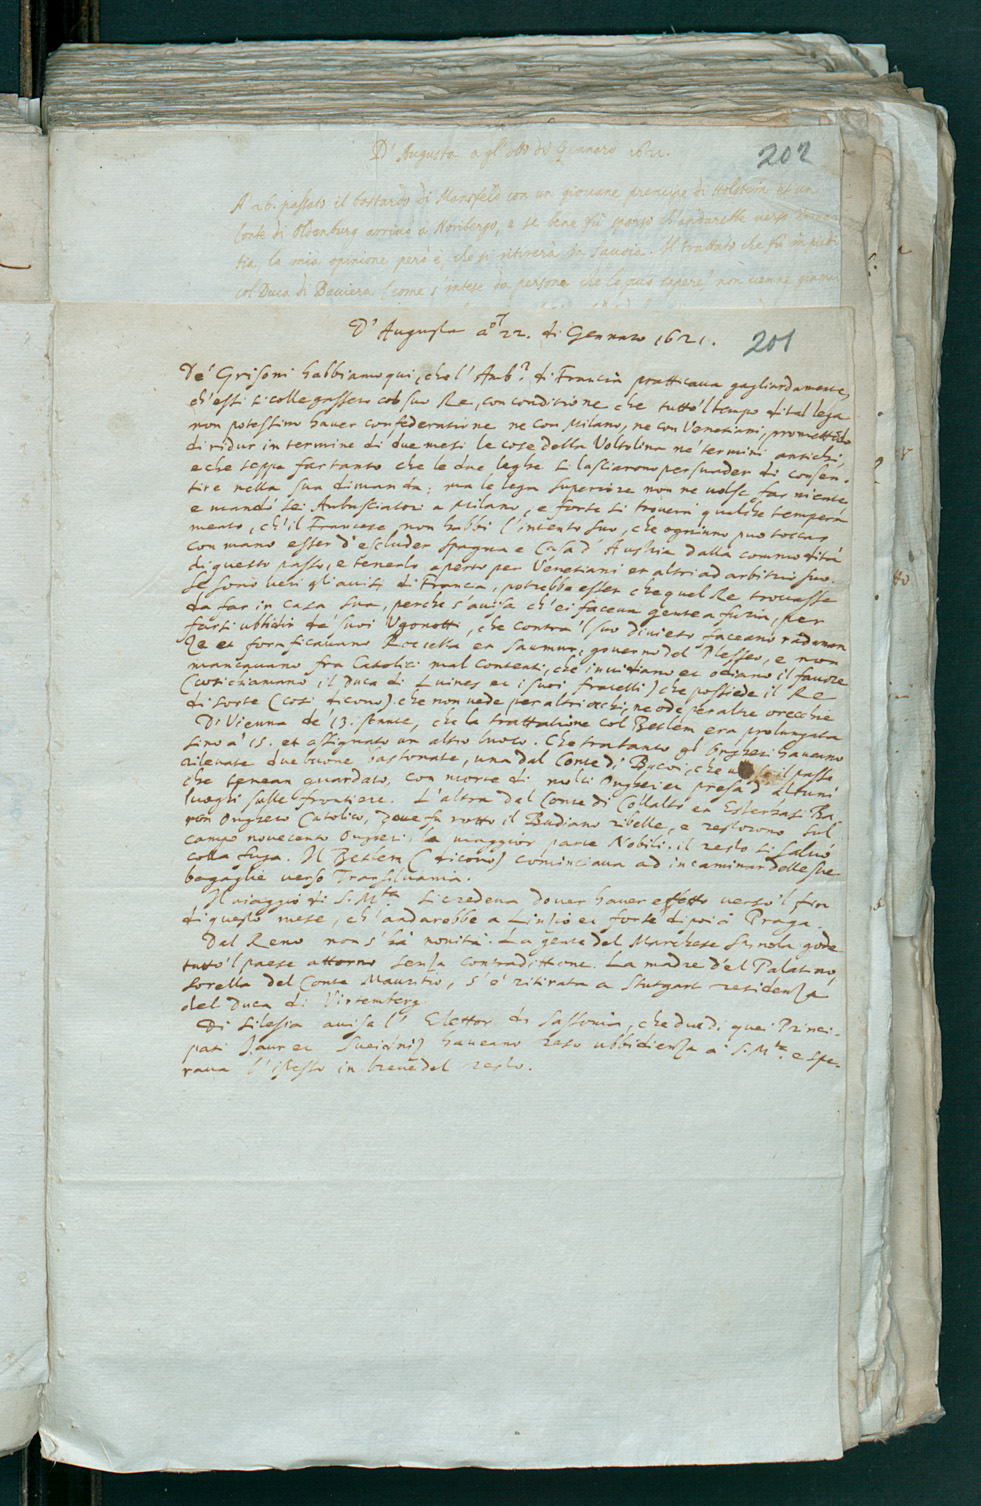 D'Augusta a gl' di Gennaro
202
A' 26. passato il bastardo di Mansfeld con un giovane prencipe di Holstein et un
Conte di Oldenburg arrivò a Noribergo, e se bene fù sparso ch'andarebbe verso
tia, la mia opinione però è, che si ritirerà in Savoia. Il trattado che fù in
col Duca di Baviera (come s'intese da persona che lo può sapere) non venne giamai
D'Augusta a' 22. di Gennaro 1621.
201
De' Grisoni habbiamo qui, che l'Amb.r di Francia pratticava gagliardamente,
ch'essi si collegassero col suo Re, con conditione che tutto 'l tempo di tal lega
non potessino haver confederatione ne con Milano, ne con Venetiani, promettendo
di ridur in termine di due mesi le cose della Voltolina ne' termini antichi,
e che seppe far tanto che le due leghe si lasciarono persuader di consen-
tire nella sua dimanda: ma le lega superiore non ne volse far niente
e mandò sei Ambasciatori a Milano, e forse si troverà qualche tempera
mento, ch'il Francese non habbi l'intento suo, che ogniuno può toccar
con mano esser d'escluder Spagna e Casa d'Austria dalla commodità
di questo passo, e tenerlo aperto per Venetiani et altri ad arbitrio suo.
Se sono veri gli avisi di Francia, potrebbe esser che quel Re trovasse
da far in casa sua, perche s'avisa ch'ei faceva gente a furia, per
farsi ubbidir da' suoi Ugonotti, che contra 'l suo divieto faceano radunan
ze et fortificavano Roccella et Saumur, governo del Plesseo, e non
mancavano fra Catolici mal contenti, che invidiano et odiano il favore
(così chiamano il Duca di Luines et i suoi fratelli) che possiede il Re
di sorte (così dicono) che non vede per altri occhi, ne ode per altre orecchie
D'Vienna de' 13. stante, che la trattatione col Betlem era prolungata
sino a' 15. et assignato un altro luoco. Che tratanto gl' Ongheri haveano
rilevate due buone bastonate, una dal Conte di Bucoi, che il passo
che tenean guardato, con morte di molti Ongheri et presa d'alcuni
luoghi sulle frontiere. L'altra dal Conte di Collalto et Esterhasi Ba
ron Onghero Catolico, dove fu rotto il Budiano ribelle, e restorono sul
campo novecento Ongheri, la maggior parte Nobili: il resto si salvò
colla fuga. Il Betlem (dicono) cominciava ad incaminar delle sue
bagaglie verso Transilvania.
Il viaggio di S. M.ta si credeva dover haver effetto verso 'l fin
di questo mese, ch'andarebbe a Linzio et forse dipoi a Praga.
Dal Reno non s'hà novità. La gente del Marchese Spinola gode
tutto 'l paese attorno senza contradittione. La madre del Palatino,
sorella del Conte Mauritio, s'è ritirata a Stutgart residenza
del Duca di Virtemberg
Di Silesia avisa l'Elettor di Sassonia, che due di quei Princi-
pati Jaur et Sueidniz haveano reso ubbidienza a S. M.ta e spe-
rava l'istesso in breve del resto.